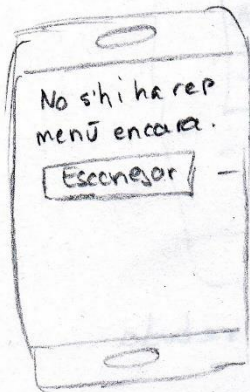 No s'hi ha rep
menú encara.
Escanejar